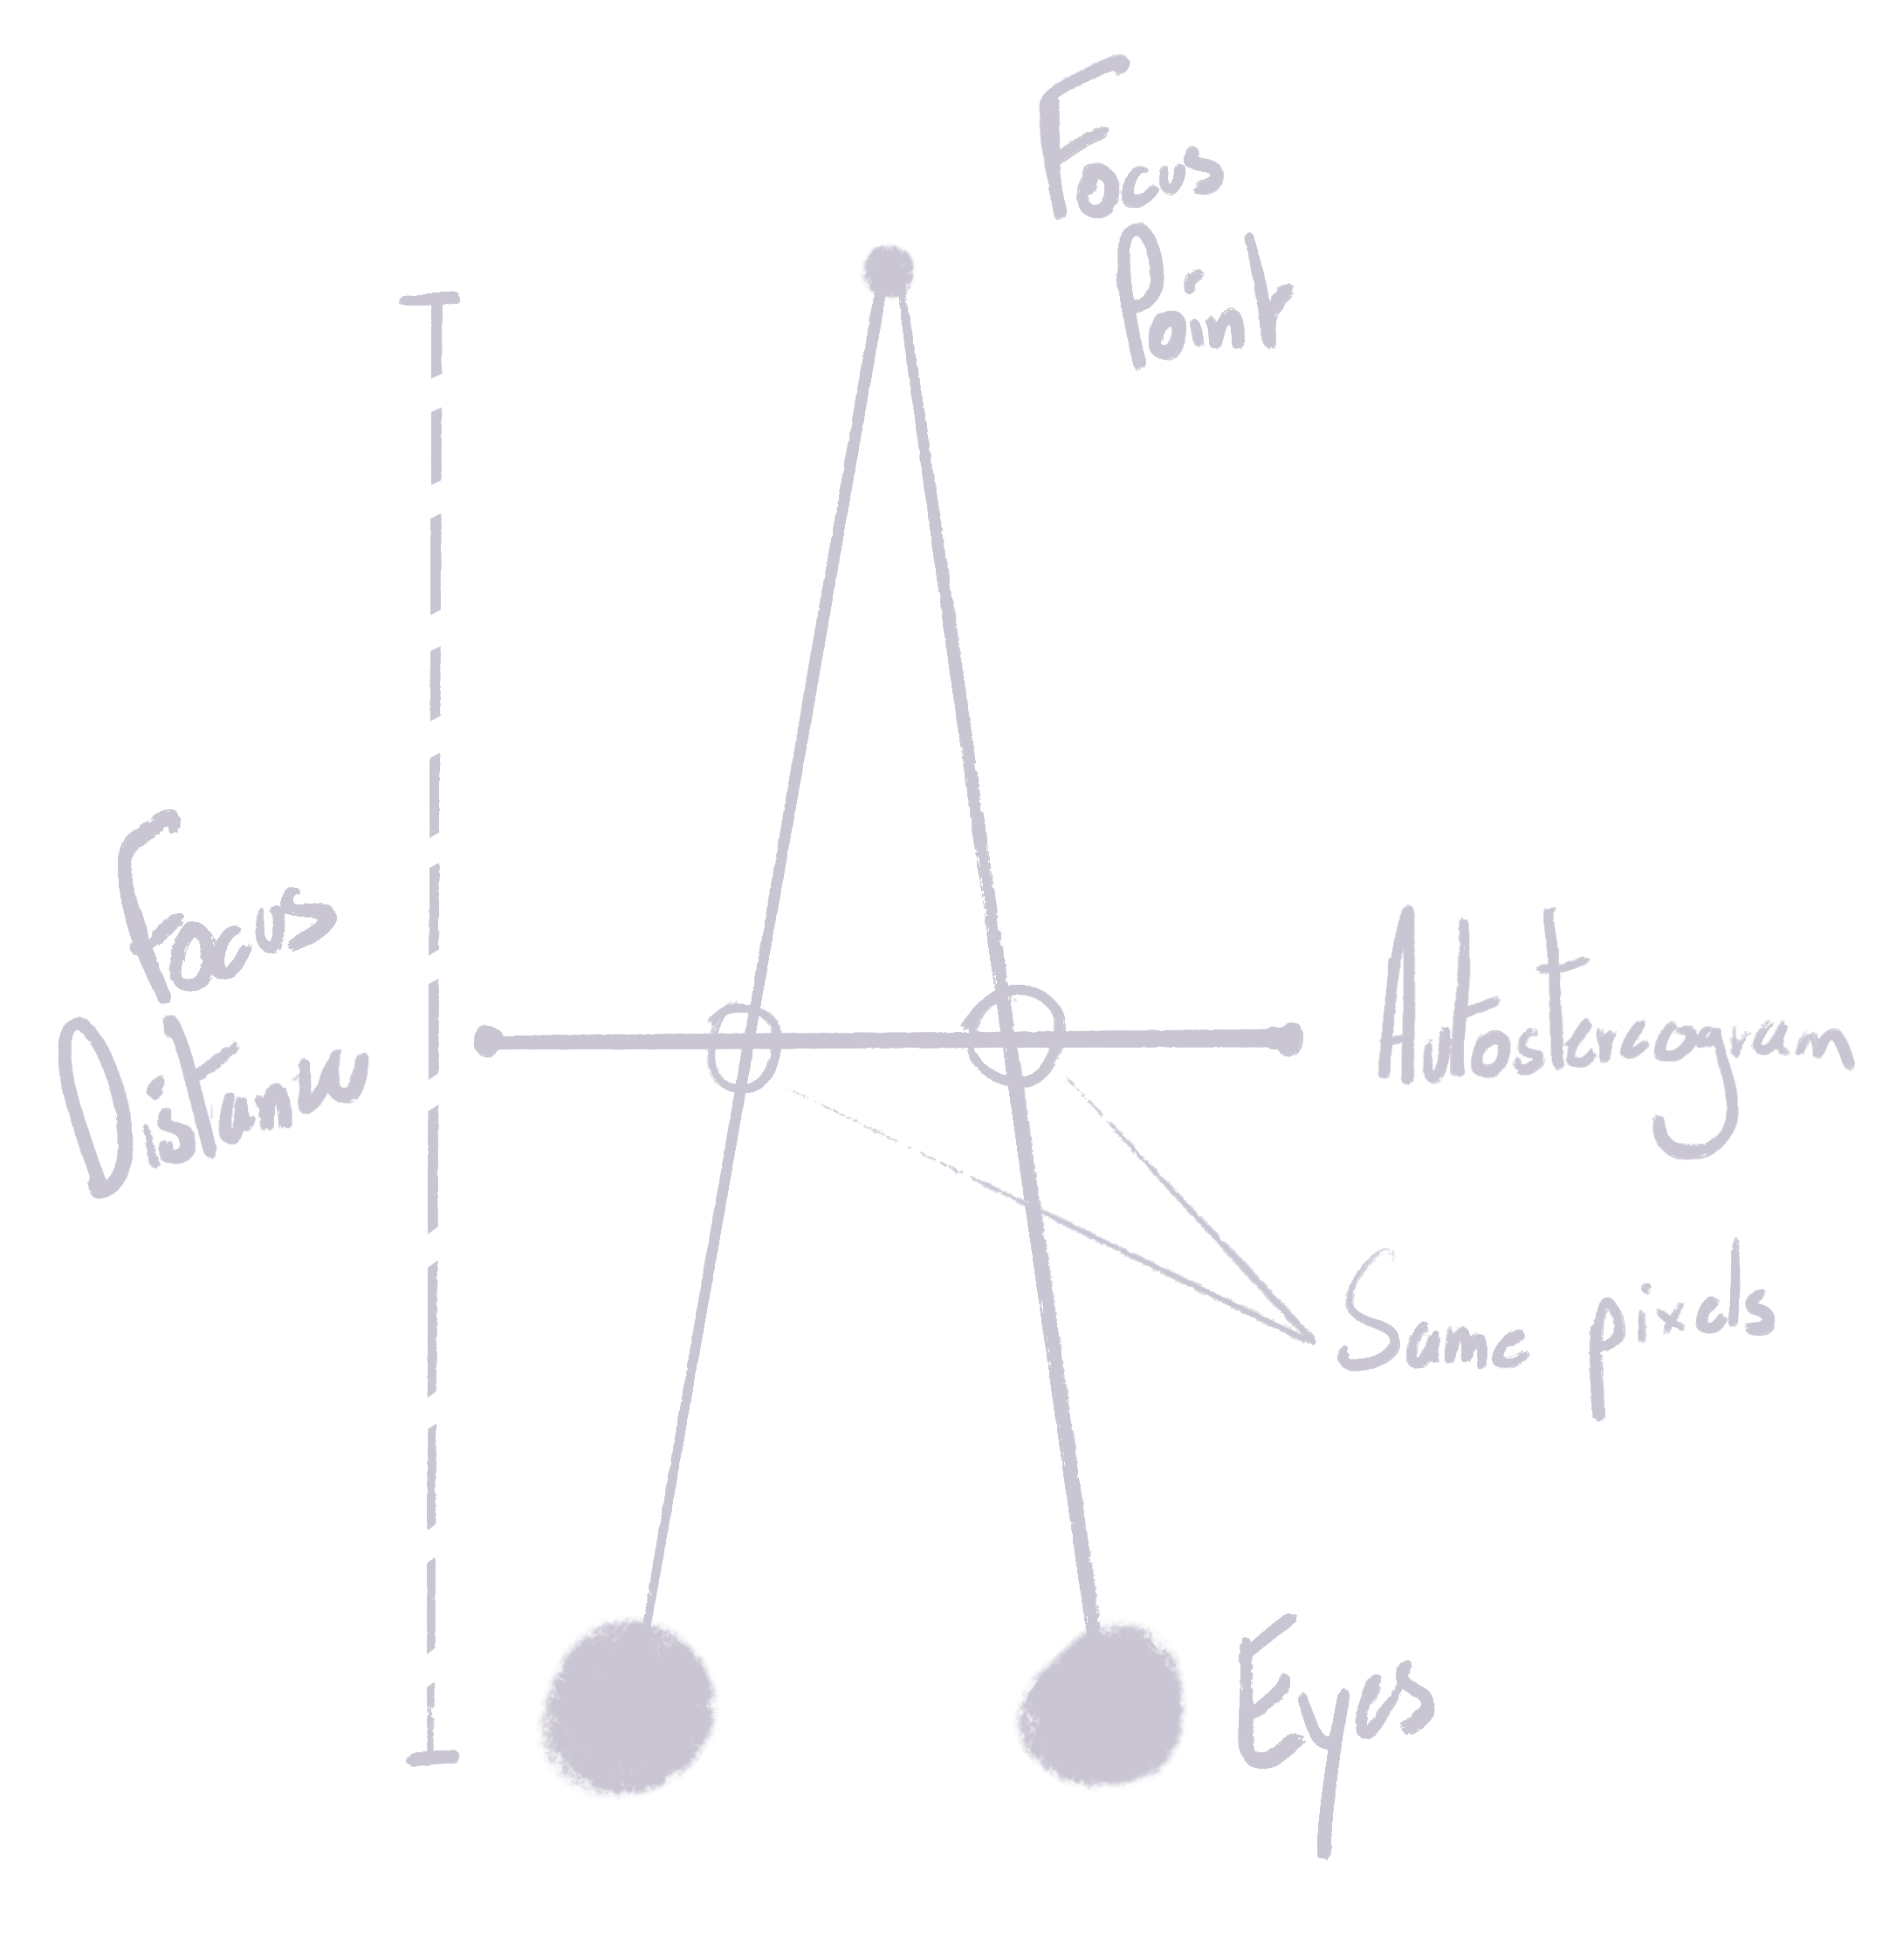 Focus
Point
Focus
Distance
Autostereogram
Same pixels
Eyes